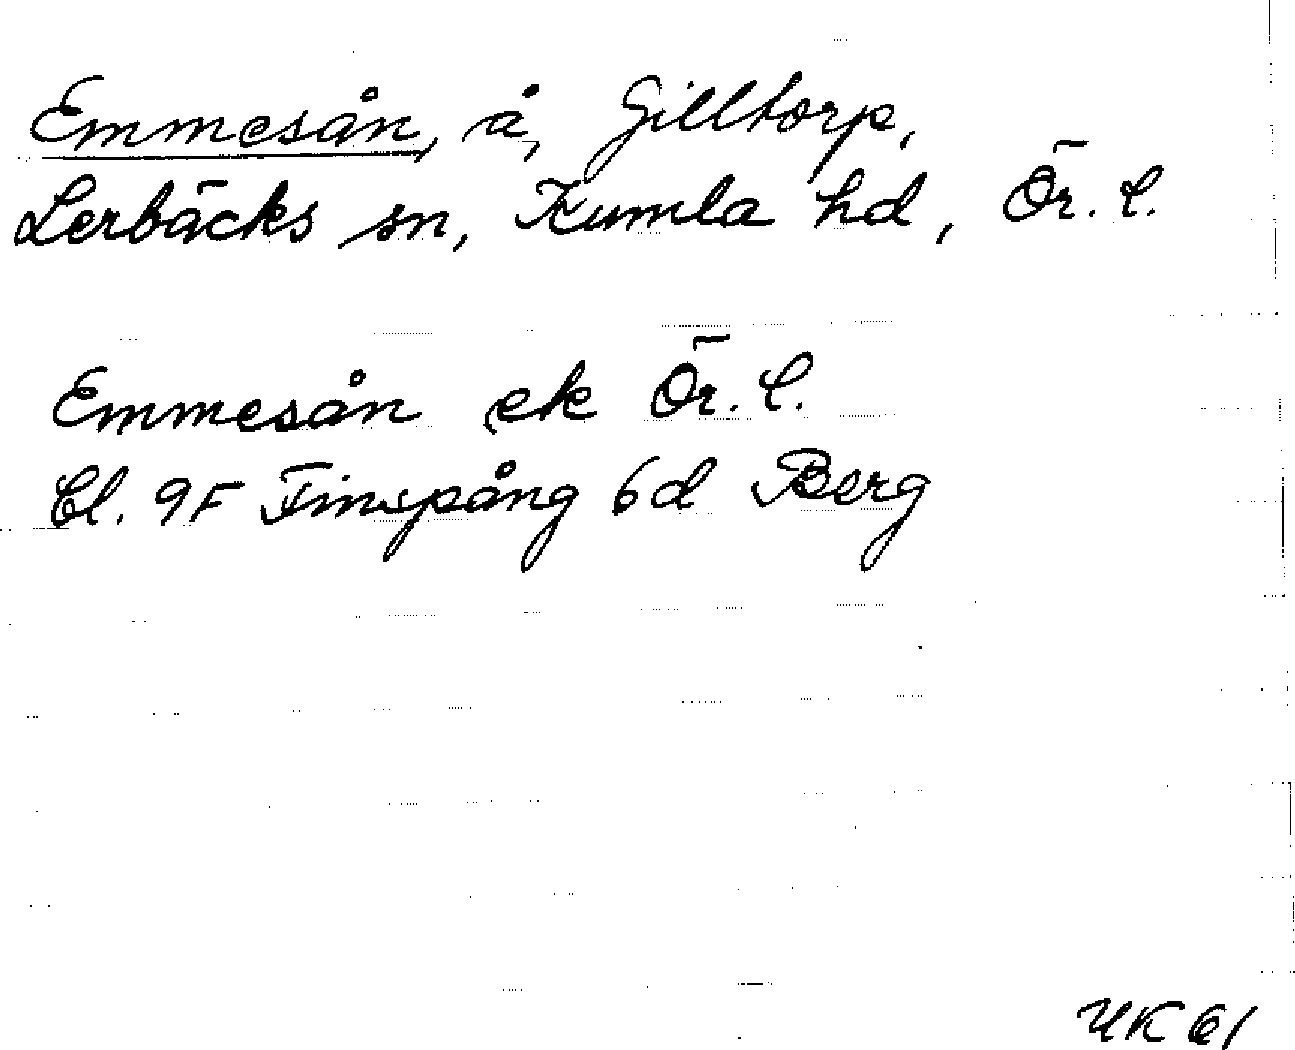 Emmesån, å, Gilltorp,
Lerbäcks sn, Kumla hd, Ör. l.
Emmesån ek Ör. l.
Bl. 9F Finspång 6d Berg
UK 61